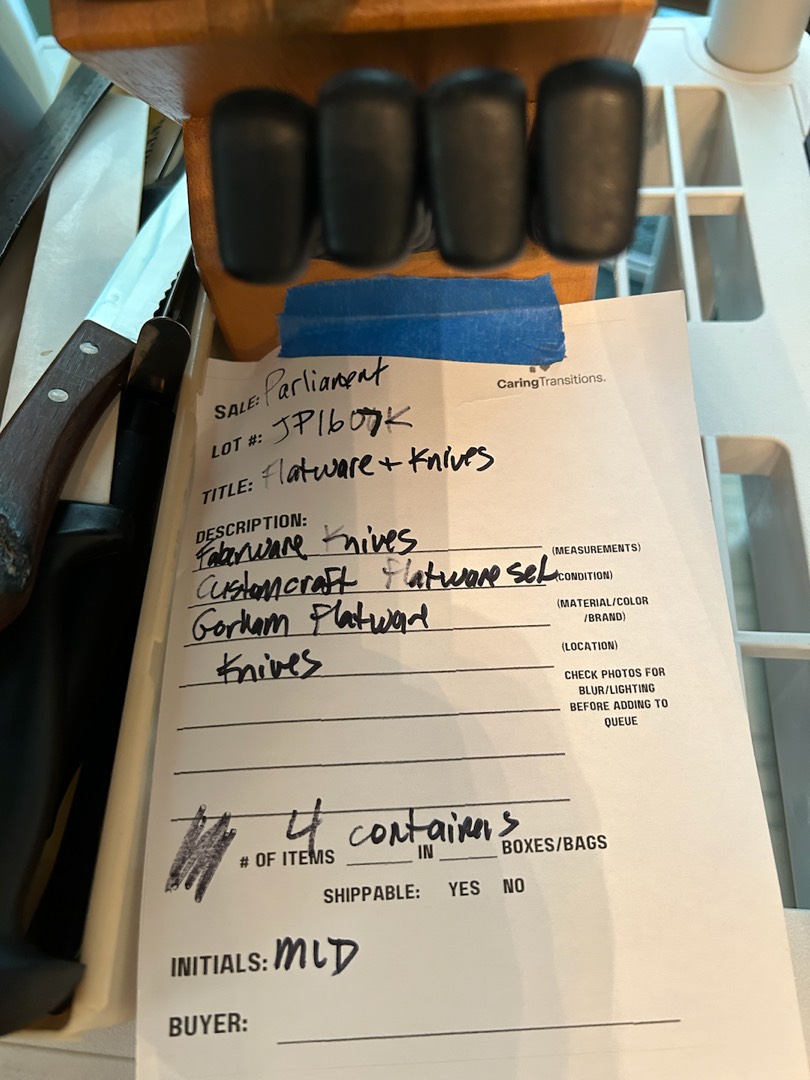 CaringTransitions.
SALE: Parliament
LOT #: JP1607K
TITLE: Flatware + Knives
DESCRIPTION:
Faberware Knives (MEASUREMENTS)
Customcraft Flatware set (CONDITION)
Gorham Flatware (MATERIAL/COLOR
/BRAND)
Knives (LOCATION)
CHECK PHOTOS FOR
BLUR/LIGHTING
BEFORE ADDING TO
QUEUE
4 containers
# OF ITEMS ______ IN ______ BOXES/BAGS
SHIPPABLE: YES NO
INITIALS: MLD
BUYER: